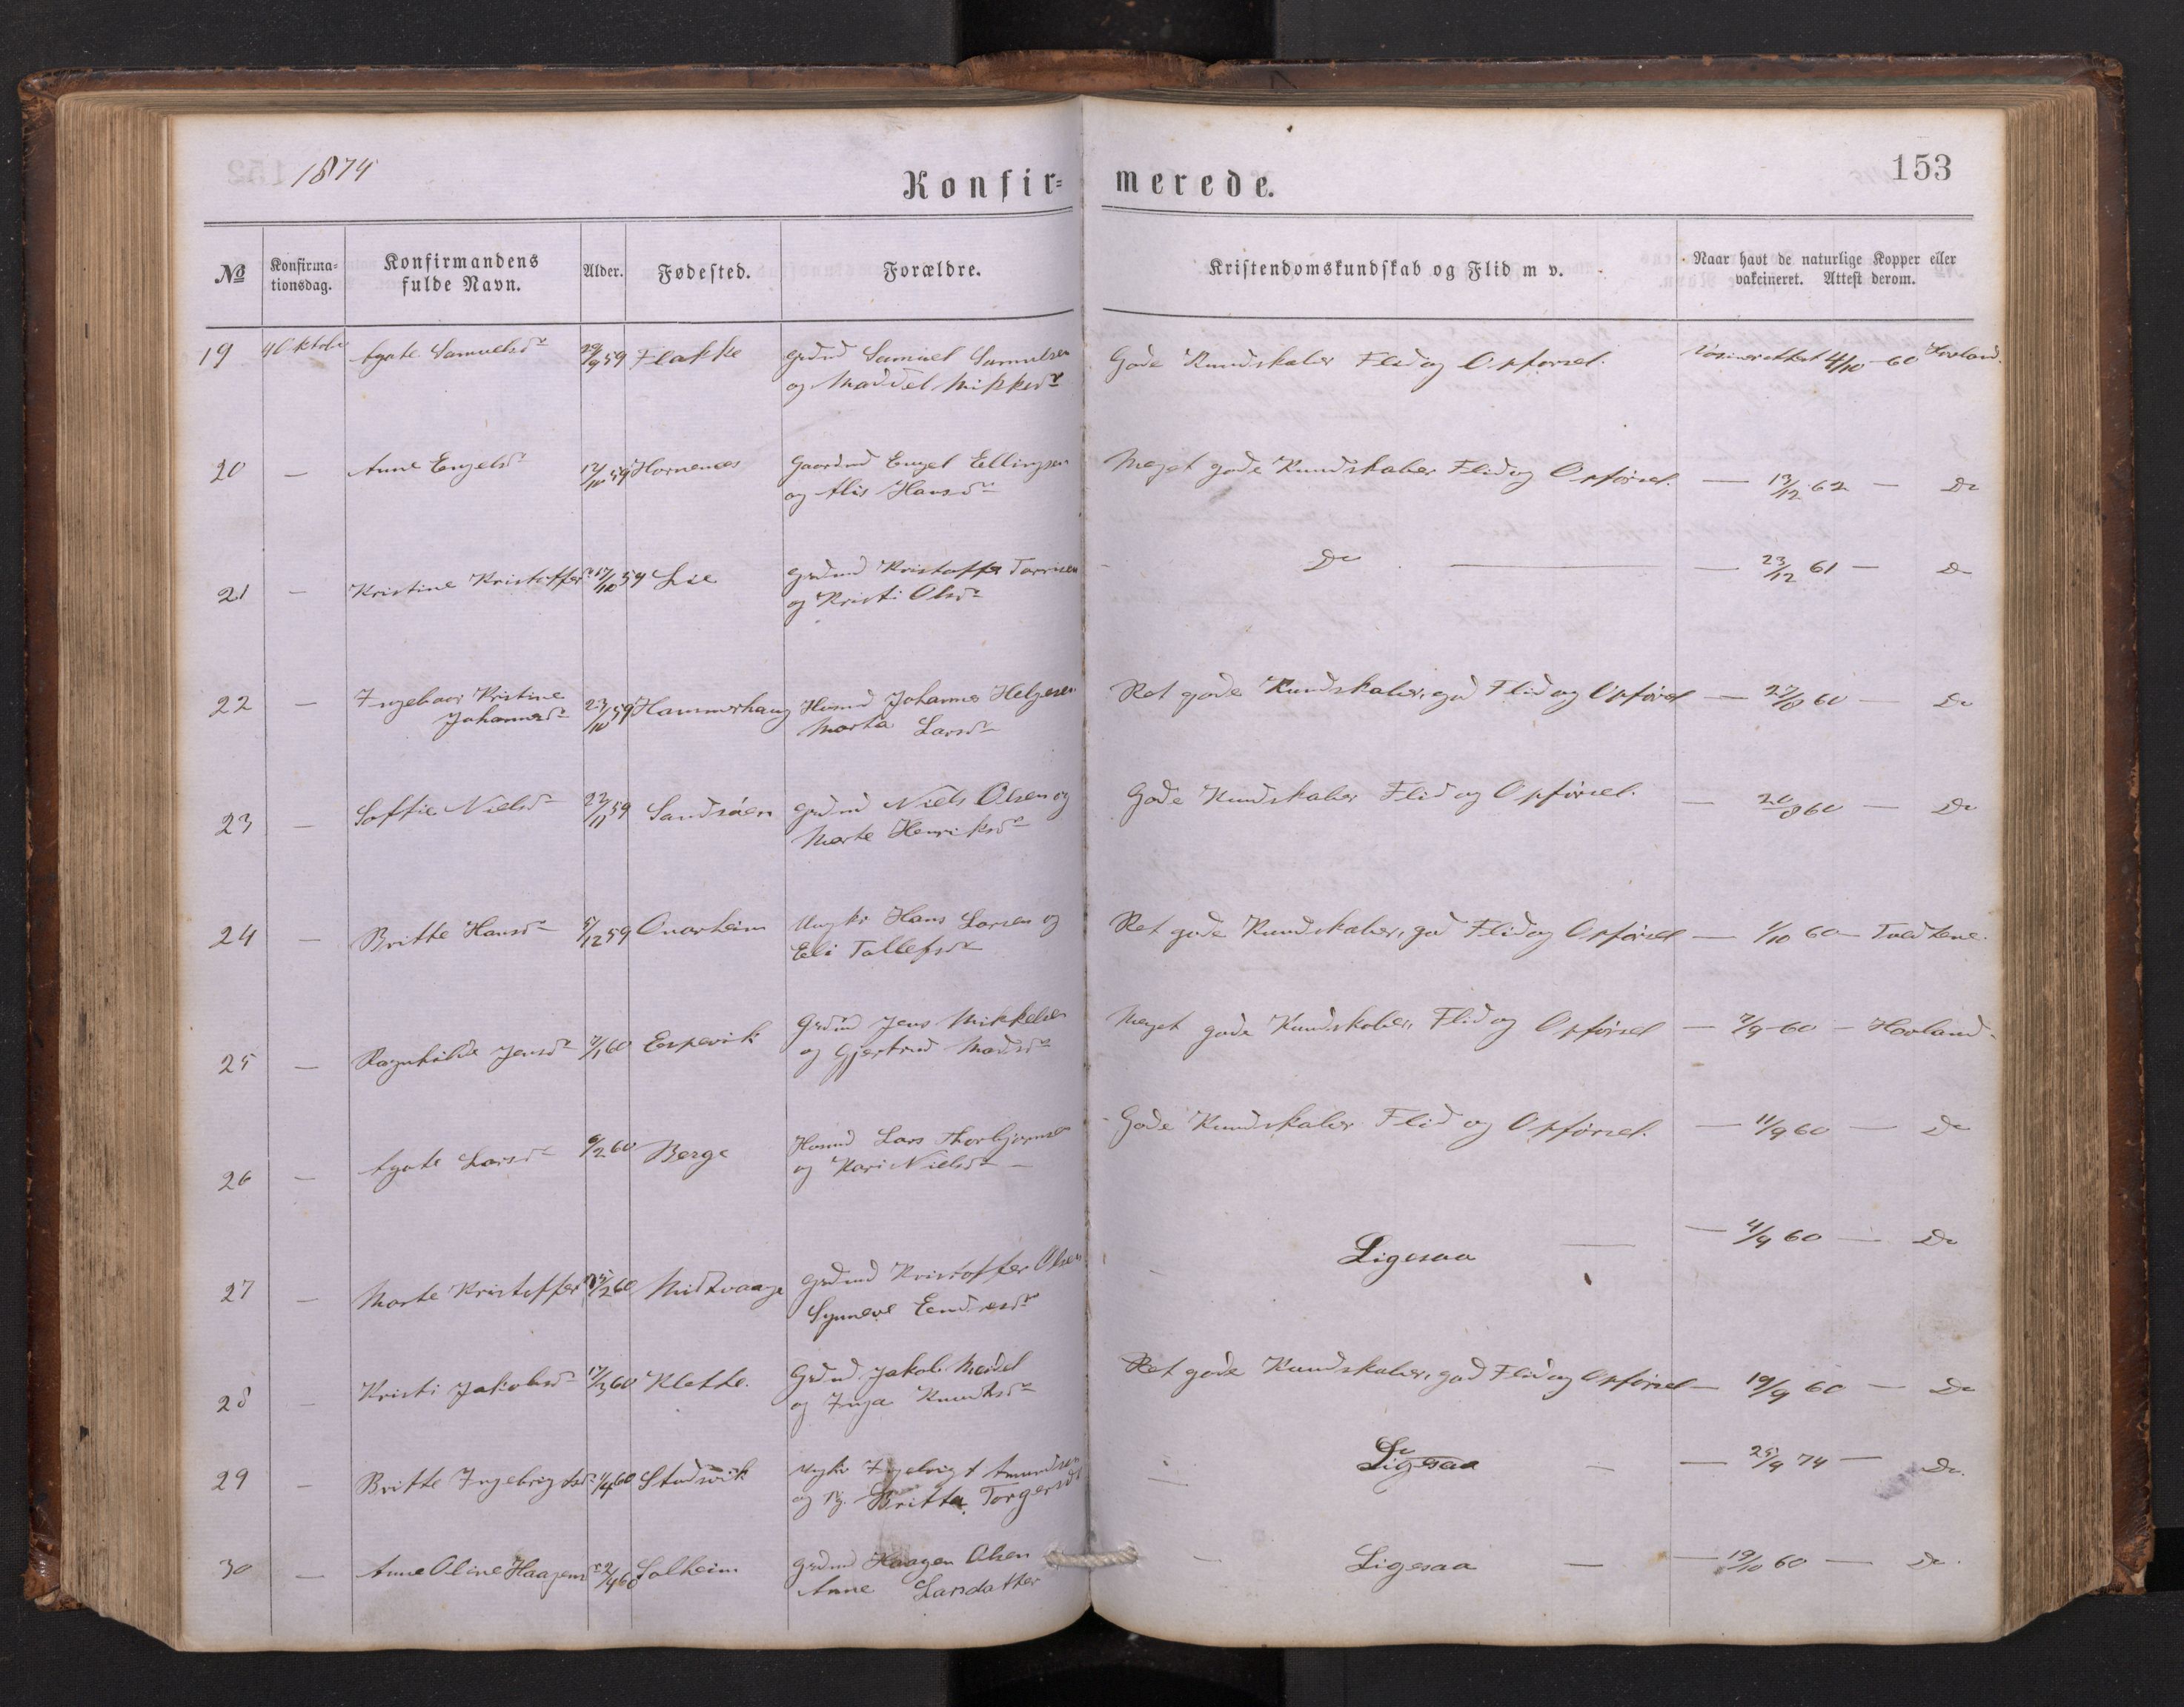 1874
Konfir=
merede.
153
No
Konfirma=
tionsdag.
Konfirmandens
fulde Navn.
Alder.
Fødested.
Forældre.
Kristendomskundskab og Flid m v.
Naar havt de naturlige Kopper eller
vakcineret. Attest derom.
19 4 Oktober Agate Samuelsdr 29/9 59 Flakke Grdmd Samuel Samuelsen
og Maddel Mikkelsdr
Gode Kundskaber Flid og Opførsel. 4/10 - 60 Hovland.
20 — Anne Engelsdr 12/10 59 Hornenes Gaardmd Engel Ellingsen
og Alis Hansdr
Meget gode Kundskaber Flid og Opførsel. — 13/12 62 — Do
21 — Kristine Kristoffersdr 17/10 59 Lie Grdmd Kristoffer Torrisen
og Kristi Olsdr
Do — 23/12 61 — Do
22 — Ingeborg Kristine
Johannesdr 23/10 59 Hammerhaug Husmd Johannes Helgesen
Marta Larsdr
Ret gode Kundskaber, god Flid og Opførsel — 27/8 60 — Do
23 — Soffie Nielsdr 22/11 59 Sandsøen Grdmd Niels Olsen og
Marte Henriksdr
Gode Kundskaber Flid og Opførsel. — 20/8 60 — Do
24 — Britte Hansdr 5/12 59 Onarheim Ungkr Hans Larsen og
Eli Tollefsdr
Ret gode Kundskaber, god Flid og Opførsel — 1/10 60 — Tvedtene.
25 — Ragnhilde Jensdr 7/1 60 Espevik Grdmd Jens Mikkelsen
og Gjertrud Madsdr
Meget gode Kundskaber, Flid og Opførsel — 7/9 60 — Hovland.
26 — Agate Larsdr 6/2 60 Berge Husmd Lars Thorbjørnsen
og Kari Nielsdr —
Gode Kundskaber Flid og Opførsel. — 11/9 60 — Do
27 — Marte Kristoffersdr 25/2 60 Midtvaage Grdmd Kristoffer Olsen
Synneve Endresdr
Ligesaa — 4/9 60 — Do
28 — Kristi Jakobsdr 17/3 60 Klette. Grdmd Jakob Meidel
og Inga Knudtsdr
Ret gode Kundskaber, god Flid og Opførsel — 19/9 60 — Do
29 — Britte Ingebrigtsdr 1/4 60 Studsvik Ungkr Ingebrigt Amundsen
og Pg. Britta Torgersdt
Ligesaa — 25/9 74 — Do.
30 — Anne Oline Haagensdr 2/4 60 Solheim Grdmd Haagen Olsen
Anne Larsdatter
Ligesaa — 19/10 60 — Do.